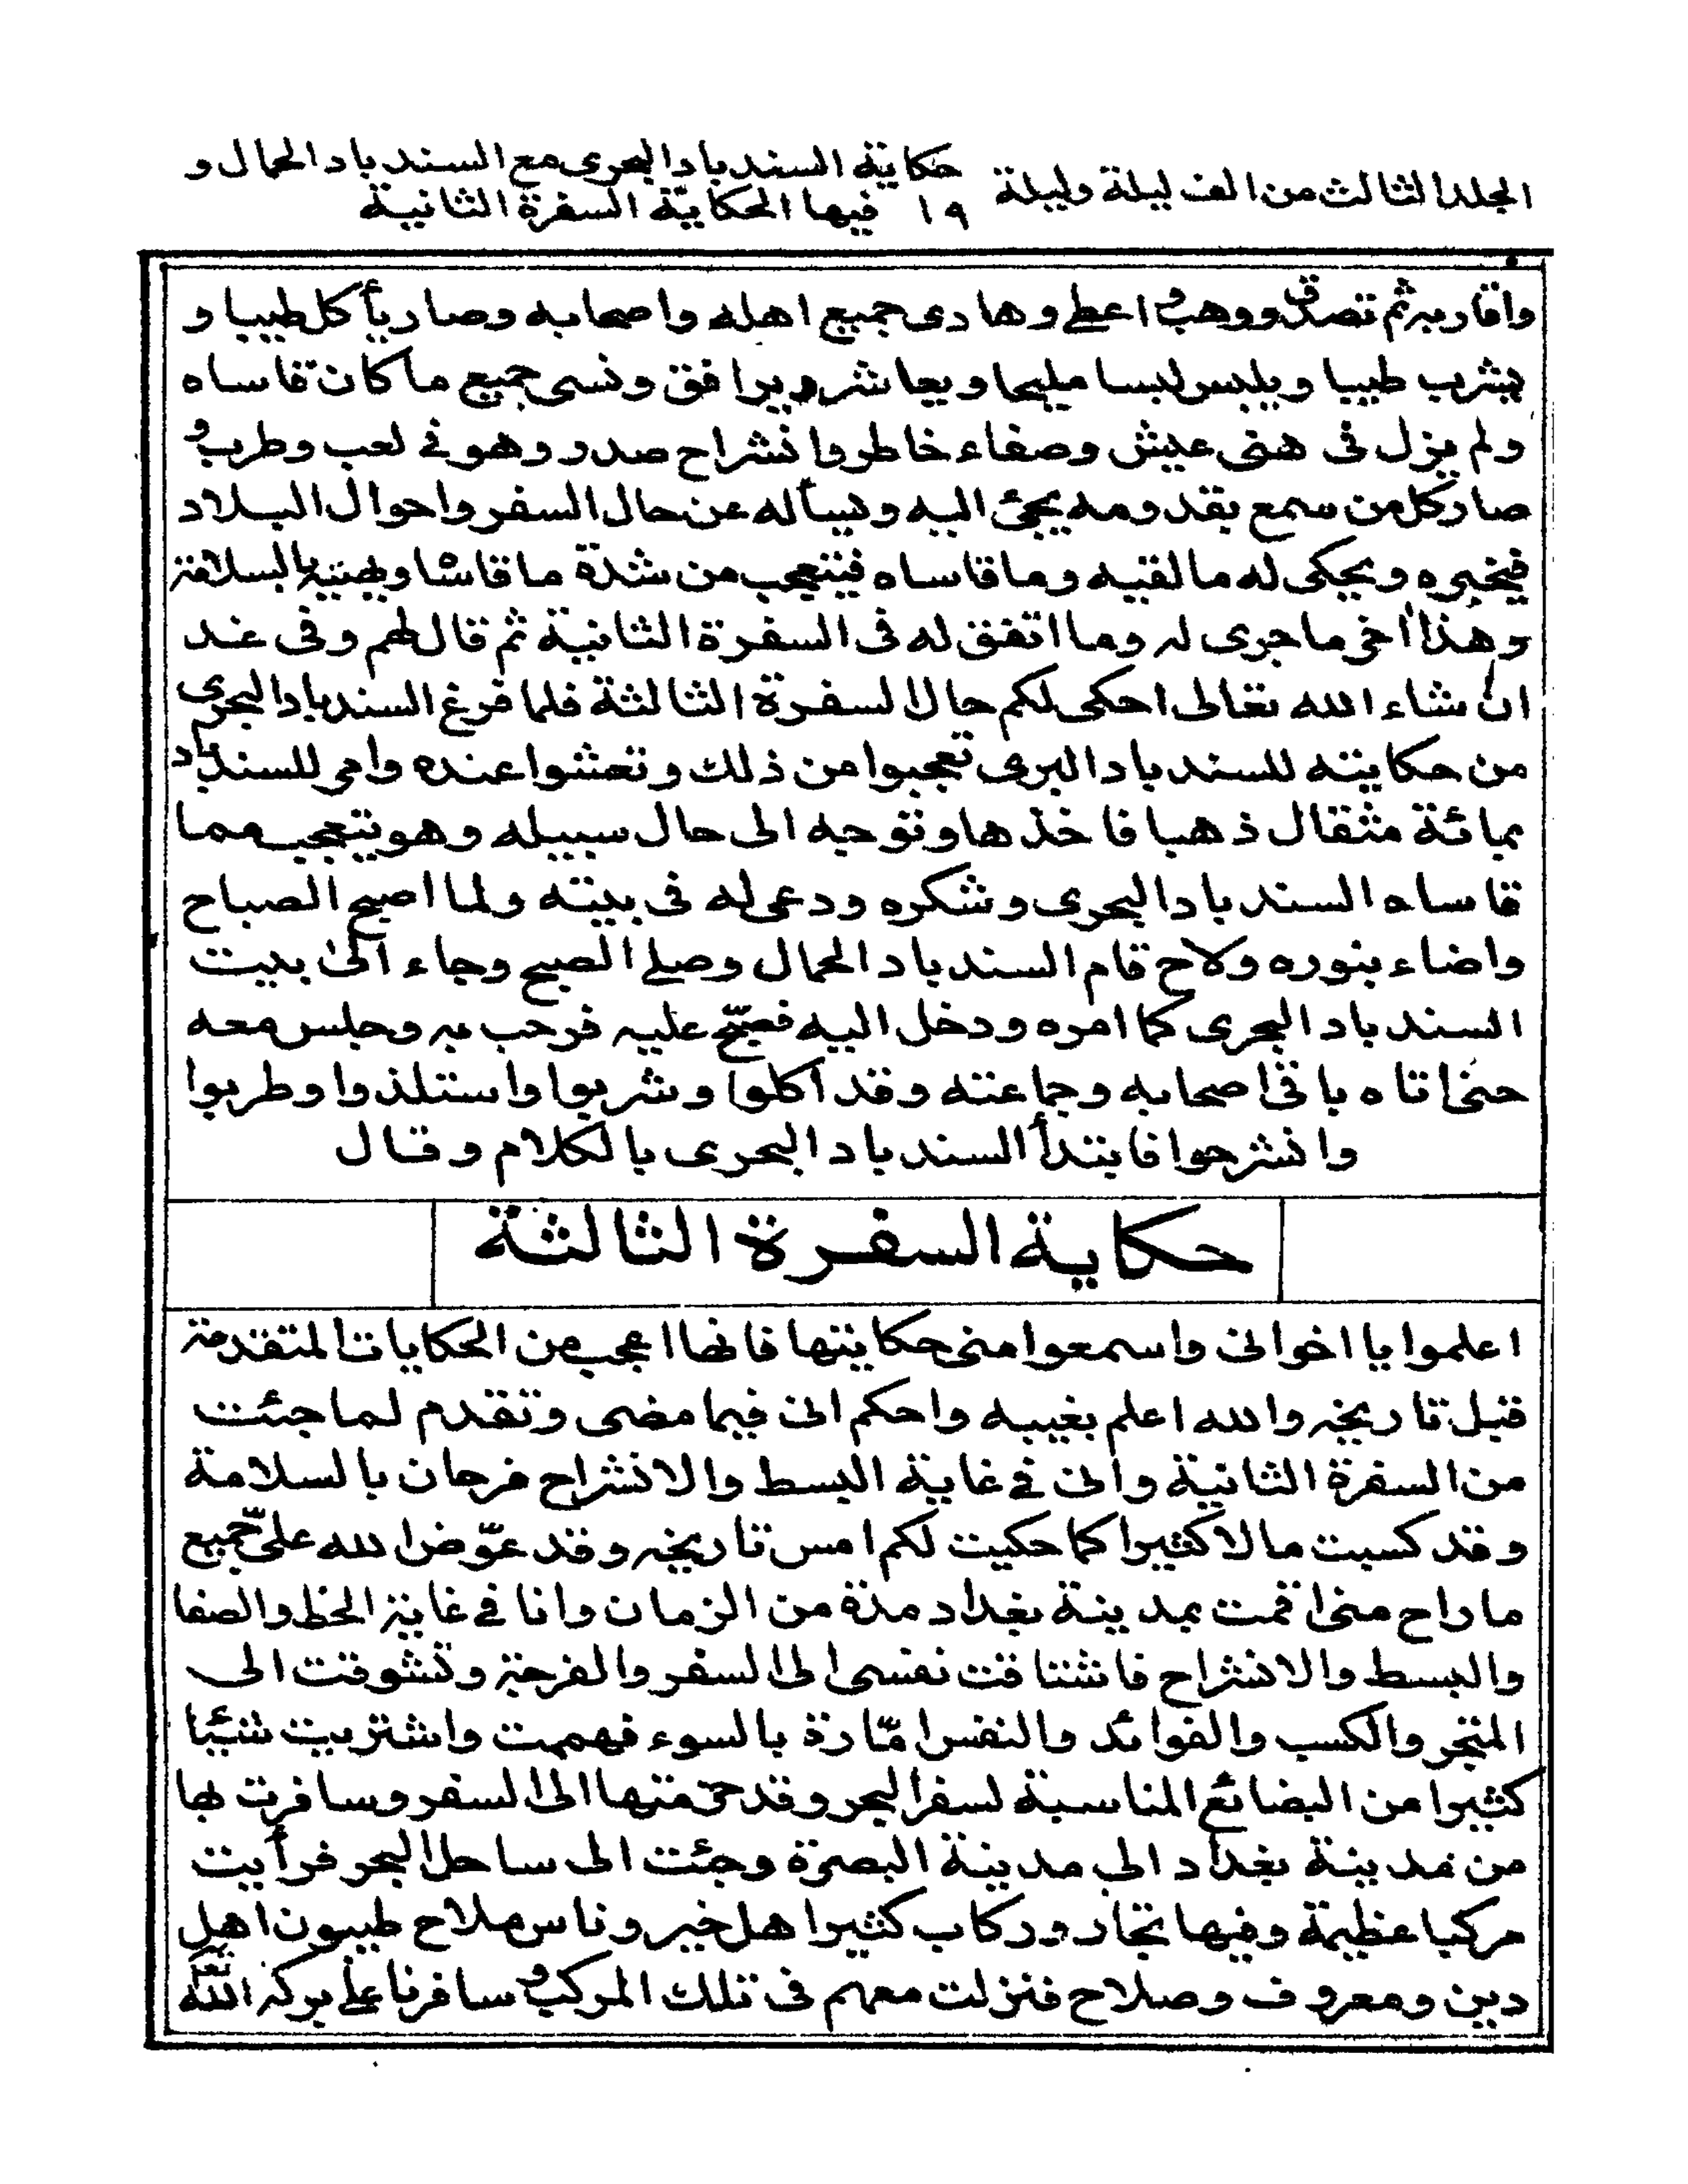 المجلد الثالث من الف ليلة وليلة
حكاية السندباد البحرى مع السندباد الحمال و
١٩ فيها الحكايّة السفرة الثانية
واقاربه ثم تصدق ووهب و اعطى وهادى جميع اهله واصحابه وصار يأكل طيبا و
يشرب طيبا ويلبس لبسا مليحا ويعاشر ويرافق ونسى جميع ما كان قاساه
ولم يزل فى هنى عيش وصفاء خاطر وانشراح صدر وهو فى لعب وطرب و
صار كل من سمع بقدومه يجئ اليه ويسأله عن حال السفر واحوال البلاد
فيخبره ويحكى له ما لقيه وما قاساه فيتعجب من شدة ما قاسا ويهنيه بالسلامة
وهذا اخر ما جرى له وما اتفق له فى السفرة الثانية ثم قال لهم وفى غد
ان شاء الله تعالى احكى لكم حال السفرة الثالثة فلما فرغ السندباد البحرى
من حكايته للسندباد البرى تعجبوا من ذلك وتعشوا عنده وامر للسندباد
بمائة مثقال ذهبا فاخذها وتوجه الى حال سبيله وهو يتعجب مما
قاساه السندباد البحرى وشكره ودعى له فى بيته ولما اصبح الصباح
واضاء بنوره ولاح قام السندباد الحمال وصلى الصبح وجاء الى بيت
السندباد البحرى كما امره ودخل اليه فصبّح عليه فرحب به وجلس معه
حتى اتاه باقى اصحابه وجماعته وقد اكلوا وشربوا واستلذوا وطربوا
وانشرحوا فابتدأ السندباد البحرى بالكلام وقال
حكاية السفرة الثالثة
اعلموا يا اخوانى واسمعوا منى حكايتها فانها اعجب من الحكايات المتقدمة
قبل تاريخه والله اعلم بغيبه واحكم انى فيما مضى وتقدم لما جئت
من السفرة الثانية وانى فى غاية البسط والانشراح فرحان بالسلامة
وقد كسبت مالا كثيرا كما حكيت لكم امس تاريخه وقد عوّض الله علىّ جميع
ما راح منى اقمت بمدينة بغداد مدة من الزمان وانا فى غاية الحظ والصفا
والبسط والانشراح فاشتاقت نفسى الى السفر والفرجة وتشوقت الى
المتجر والكسب والفوائد والنفس امّارة بالسوء فهممت واشتريت شيئا
كثيرا من البضائع المناسبة لسفر البحر وقد حزمتها الى السفر وسافرت بها
من مدينة بغداد الى مدينة البصرة وجئت الى ساحل البحر فرأيت
مركبا عظيمة وفيها تجار وركاب كثيرا هل خير وناس ملاح طيبون اهل
دين ومعروف وصلاح فنزلت معهم فى تلك المركب و سافرنا على بركة الله تعالى